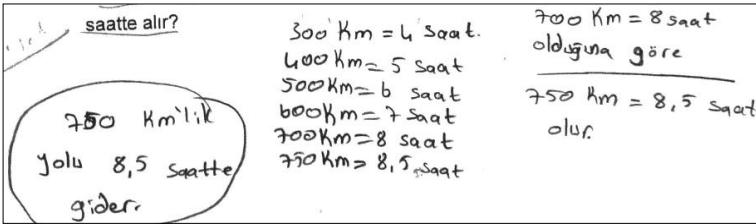 saatte alır?
750 Km'lik
yolu 8,5 saatte
gider.
300 Km = 4 saat.
400 Km = 5 saat
500 Km = 6 saat
600 Km = 7 saat
700 Km = 8 saat
750 Km = 8,5 saat
700 Km = 8 saat
olduğuna göre
750 Km = 8,5 saat
olur.